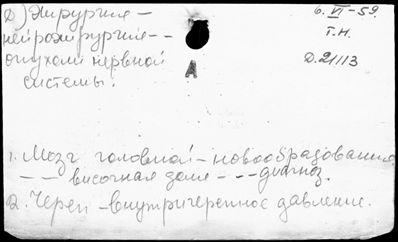 Д) Хирургия –
6. VI – 59.
нейрохирургия - -
Т.Н.
опухоли нервной
Д.21113
системы.
А
1. Мозг головной – новообразования
– – височная доля – – – диагноз.
2. Череп – внутричерепное давление.